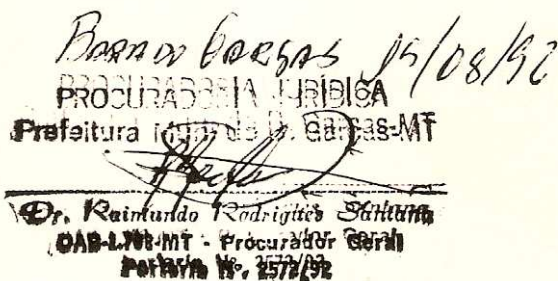 Barra do Garças 15/08/92
PROCURADORIA JURÍDICA
Prefeitura Mun. de B. Garças-MT
Dr. Raimundo Rodrigues Santana
OAB-1.798-MT - Procurador Geral
Portaria Nº. 2572/92